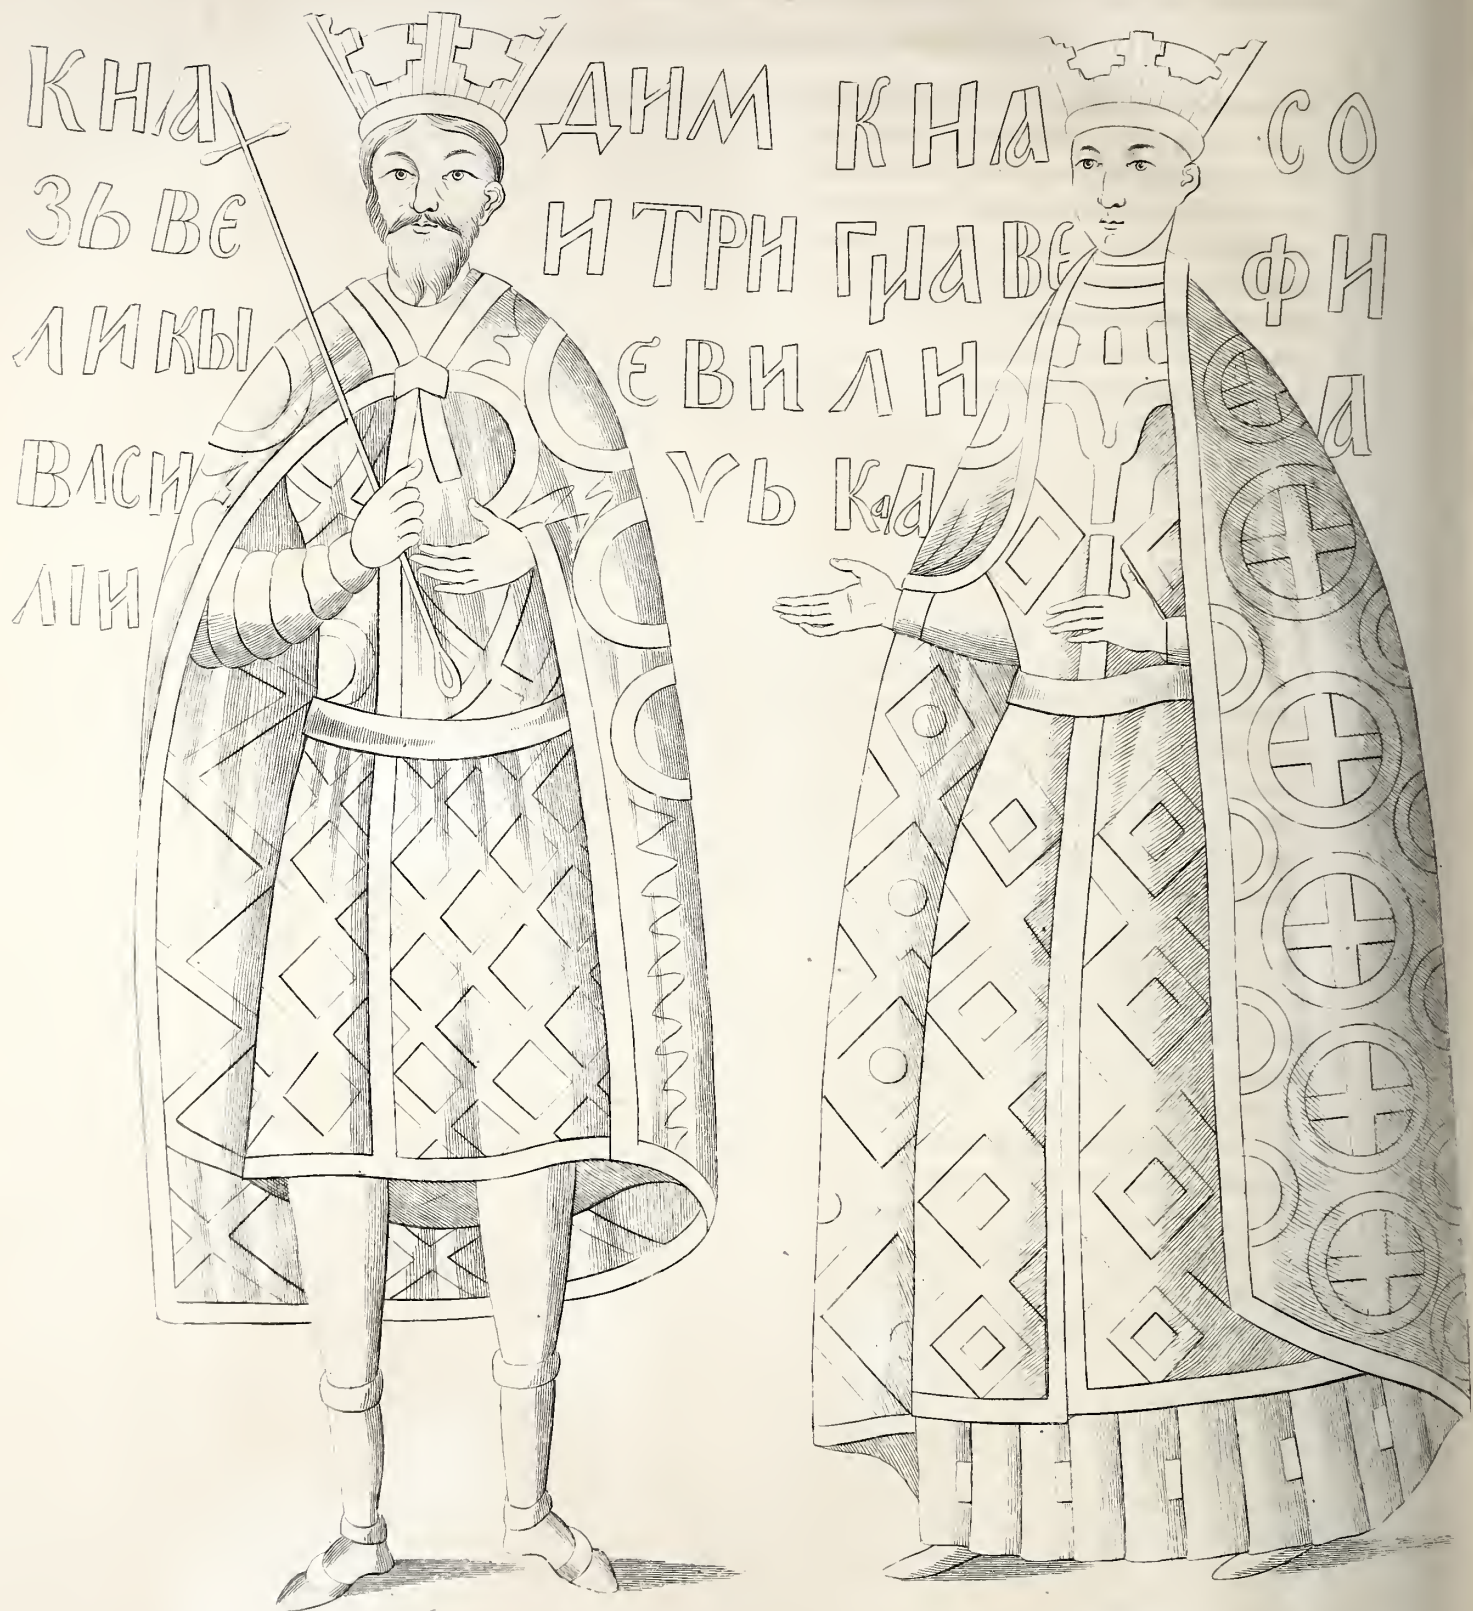 КНꙖ
ЗЬВЕ
ЛИКЫ
ВЛСИ
ЛІИ
ДИМ
ИТРИ
ЕВИ
ЧЬ
КНꙖ
ГИАВЕ
ЛИ
КАА
СО
ФИ
А